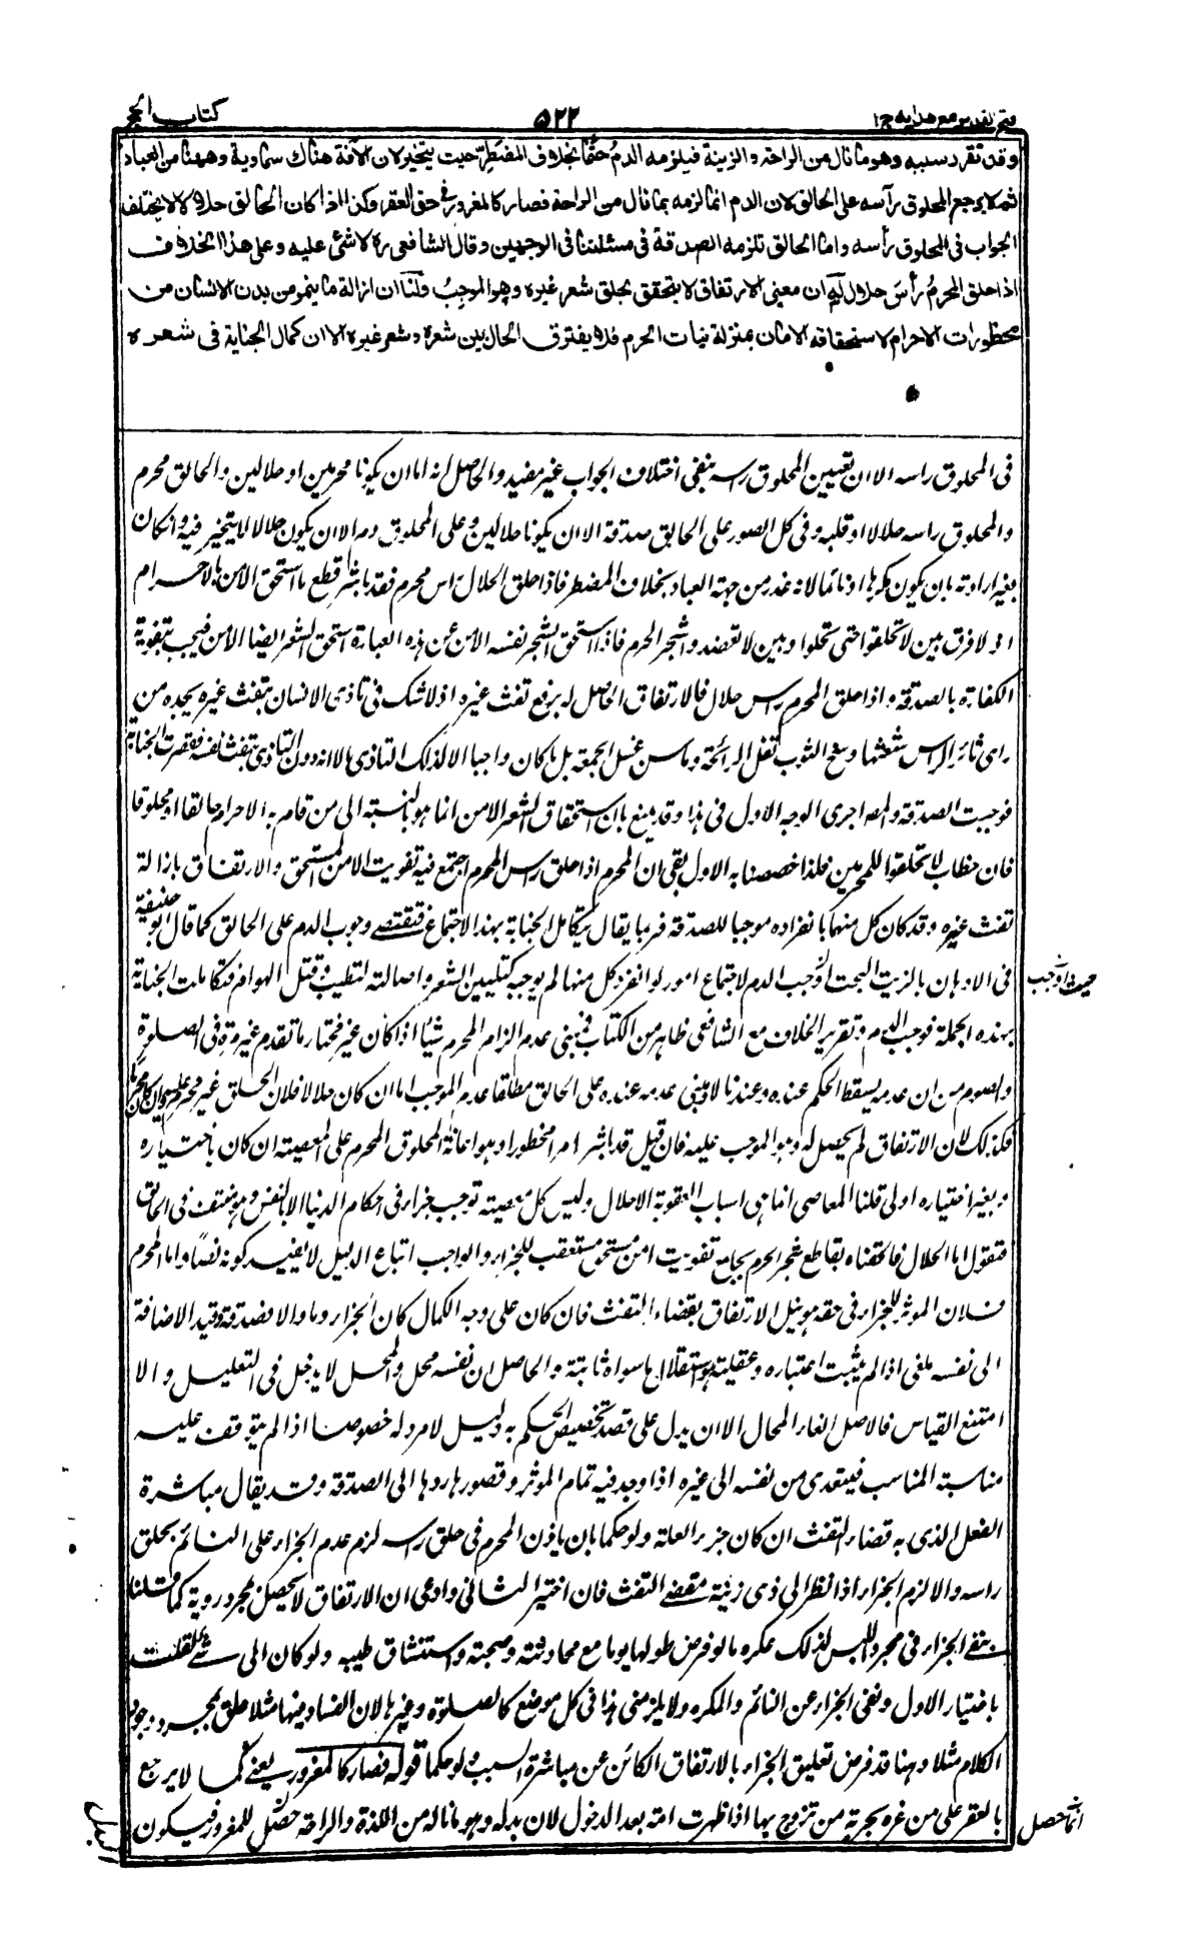 فتح القدير مع هدايه ج ١
٥٢٢
كتاب الحج
وقد تقرر سببه وهو ما نال من الراحة والزينة فيلزمه الدم حتما بخلاف المضطر حيث يتخير لان الآفة هناك سماوية وههنا من العباد
ثم لا يرجع المحلوق رأسه على الحالق لان الدم انما لزمه بما نال من الراحة فصار كالمغرور فى حق العقر وكذا اذا كان الحالق حلالا لا يختلف
الجواب فى المحلوق رأسه واما الحالق تلزمه الصدقة فى مسئلتنا فى الوجهين وقال الشافعى ره لا شئ عليه وعلى هذا الخلاف
اذا حلق المحرم رأس حلال له ان معنى الارتفاق لا يتحقق بحلق شعر غيره وهو الموجب ولنا ان ازالة ما ينمو من بدن الانسان من
محظورات الاحرام لاستحقاقه الامان بمنزلة نبات الحرم فلا يفترق الحال بين شعره وشعر غيره الا ان كمال الجناية فى شعره
فى المحلوق راسه الا ان تعيين المحلوق راسه بنفى اختلاف الجواب غير مفيد والحاصل انه اما ان يكونا محرمين او حلالين والحالق محرم
والمحلوق راسه حلالا او قلبه وفى كل الصور على الحالق صدقة الا ان يكونا حلالين وعلى المحلوق دم الا ان يكون حلالا لا يتخير فيه وان كان
بغير ارادته بان يكون مكرها او نائما لانه عذر من جهة العباد بخلاف المضطر فاذا حلق الحلال راس محرم فقد باشر قطع ما استحق الامن بالاحرام
اذ لا فرق بين لا تحلقوا حتى تحلوا وبين لا تعضدوا شجر الحرم فاذا استحق الشجر نفسه الامن عن هذه العبارة استحق الشعر ايضا الامن فيجب بتفويته
الكفارة بالصدقة واذا حلق المحرم راس حلال فالارتفاق الحاصل له برفع تفث غيره اذ لا شك فى تاذى الانسان بتفث غيره يجده من
راى ثائر الراس شعثها وسخ الثوب تفل الرائحة وما سن غسل الجمعة بل ما كان واجبا الا لذلك التاذى الا انه دون التاذى بتفث نفسه فقصرت الجناية
فوجبت الصدقة والمص اجرى الوجه الاول فى هذا وقد يمنع بان استحقاق الشعر الامن انما هو بالنسبة الى من قام به الاحرام حالقا او محلوقا
فان خطاب لا تحلقوا للمحرمين فلذا خصصنا به الاول بقى ان المحرم اذا حلق راس المحرم اجتمع فيه تفويت الامن المستحق والارتفاق بازالة
تفث غيره وقد كان كل منهما بانفراده موجبا للصدقة فربما يقال تتكامل الجناية بهذا الاجتماع فتقتضى وجوب الدم على الحالق كما قال ابو حنيفة
فى الادهان بالزيت البحت اوجب الدم لاجتماع امور لو انفرد كل منها لم يوجبه كتليين الشعر واصالته للطيب وقتل الهوام فتكاملت الجناية
حيث اوجب
بهذه الجملة فوجب الدم وتقرير الخلاف مع الشافعى ظاهر من الكتاب فمبنى عدم الزام المحرم شيئا اذا كان غير مختار ما تقدم غير مرة فى الصلوة
والصوم من ان عدمه يسقط الحكم عنده وعندنا لا ومبنى عدمه عنده على الحالق مطلقا عدم الموجب اما ان كان حلالا فلان الحلق غير محرم عليه وان كان محرما
فكذلك لان الارتفاق لم يحصل له وهو الموجب عليه فان قيل قد باشر امرا محظورا وهو اعانة المحلوق المحرم على المعصية ان كان باختياره
وبغير اختياره اولى قلنا المعاصى انما هى اسباب العقوبة الاحلال وليس كل معصية توجب جزاء فى احكام الدنيا الا بالنص وهو منتف فى الحالق
فنقول اما الحلال فالحقناه بقاطع شجر الحرم بجامع تفويت امن مستحق مستعقب للجزاء والواجب اتباع الدليل لا بقيد كونه نصا واما المحرم
فلان الموثر للجزاء فى حقه هو نيل الارتفاق بقضاء التفث فان كان على وجه الكمال كان الجزاء دما والا فصدقة وقيد الاضافة
الى نفسه ملغى اذا لم يثبت اعتباره وعقلية استقلال ما سواه ثابتة والحاصل ان نفسه محل والمحل لا يدخل فى التعليل والا
امتنع القياس فالاصل الغاء المحال الا ان يدل على قصد تخصيص الحكم به دليل لا مرد له خصوصا اذا لم يتوقف عليه
مناسبة المناسب فيتعدى من نفسه الى غيره اذا وجد فيه تمام الموثر وقصورها ردها الى الصدقة وقد يقال مباشرة
الفعل الذى به قضاء التفث ان كان جزء العلة ولو حكما بان ياذن المحرم فى حلق راسه لزم عدم الجزاء على النائم بحلق
راسه والا لزم الجزاء اذا نظر الى ذى زينة مقضى التفث فان اختير الثانى وادعى ان الارتفاق لا يحصل بمجرد روية كما قلنا
بنفى الجزاء فى مجرد اللبس لذلك عكره ما لو فرض طولها يوما مع محادثته وصحبته واستنشاق طيبه ولو كان الى شئ لقلت
باختيار الاول ونفى الجزاء عن النائم والمكره ولا يلزمنى هذا فى كل موضع كالصلوة وغيرها لان الفساد فيها مثلا علق بمجرد وجود
الكلام مثلا وهنا قد فرض تعليق الجزاء بالارتفاق الكائن عن مباشرة السبب ولو حكما قوله فصار كالمغرور يعنى كما لا يرجع
بالعقر على من غره بحرية من تزوج بها اذا ظهرت امة بعد الدخول لان بدله وهو ما ناله من اللذة والراحة حصل للمغرور فيكون
انما حصل
البدل